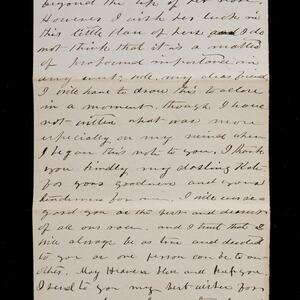 beyond the life of her
However I wish her luck in
this little plan of hers and I do
not think that it is a matter
of profound importance in
any event. Well, my dear friend
I will have to draw this to a close
in a moment, though I have
not written what was more
especially on my mind when
I began this note to you. I thank
you kindly my darling Kate
for your goodness and your
tenderness for me. I will
good you as the best and dearest
of all our race. and I trust that I
will always be as true and devoted
to you as one person can be to an-
other. May Heaven bless and keep you.
I send to you my best wishes for